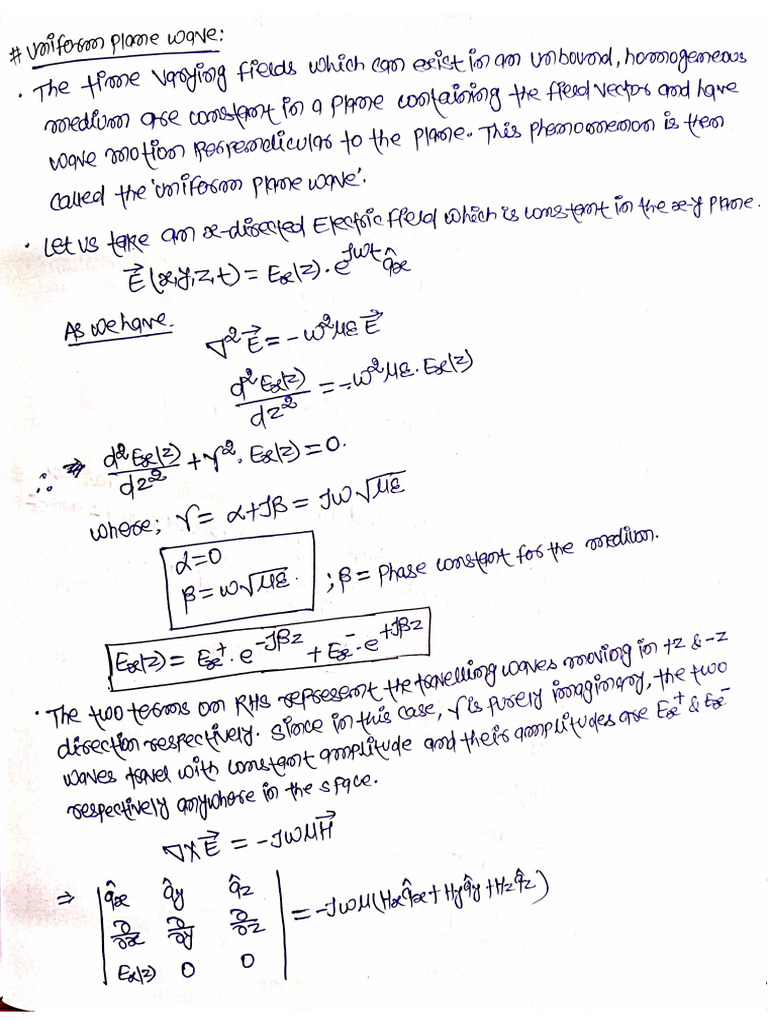 # Uniform plane wave:
• The time varying fields which can exist in an unbound, homogeneous
medium are constant in a plane containing the field vector and have
wave motion perpendicular to the plane. This phenomenon is then
called the 'uniform plane wave'.
• Let us take an x-directed Electric field which is constant in the x-y plane.
E⃗(x,y,z,t) = Ex(z)·e^{jωt} âx
As we have.
∇²E⃗ = -ω²με E⃗
d²Ex(z)/dz² = -ω²με·Ex(z)
∴ ⇒ d²Ex(z)/dz² + γ²·Ex(z) = 0.
where; γ = α+jβ = jω√με
α=0
β = ω√με. ; β = Phase constant for the medium.
Ex(z) = Ex⁺·e^{-jβz} + Ex⁻·e^{+jβz}
• The two terms on RHS represent the travelling waves moving in +z & -z
direction respectively. Since in this case, γ is purely imaginary, the two
waves travel with constant amplitude and their amplitudes are Ex⁺ & Ex⁻
respectively anywhere in the space.
∇×E⃗ = -jωμH⃗
⇒ | âx ây âz |
| ∂/∂x ∂/∂y ∂/∂z | = -jωμ(Hxâx + Hyây + Hzâz)
| Ex(z) 0 0 |